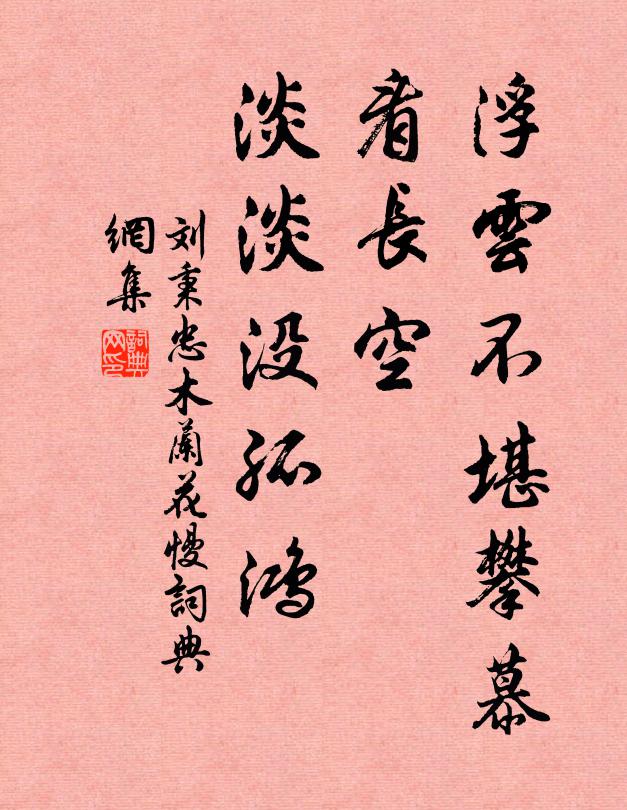 浮雲不堪攀慕
看長空
淡淡没孤鴻
刘秉忠木蘭花慢詞典
網集
詞典
网印